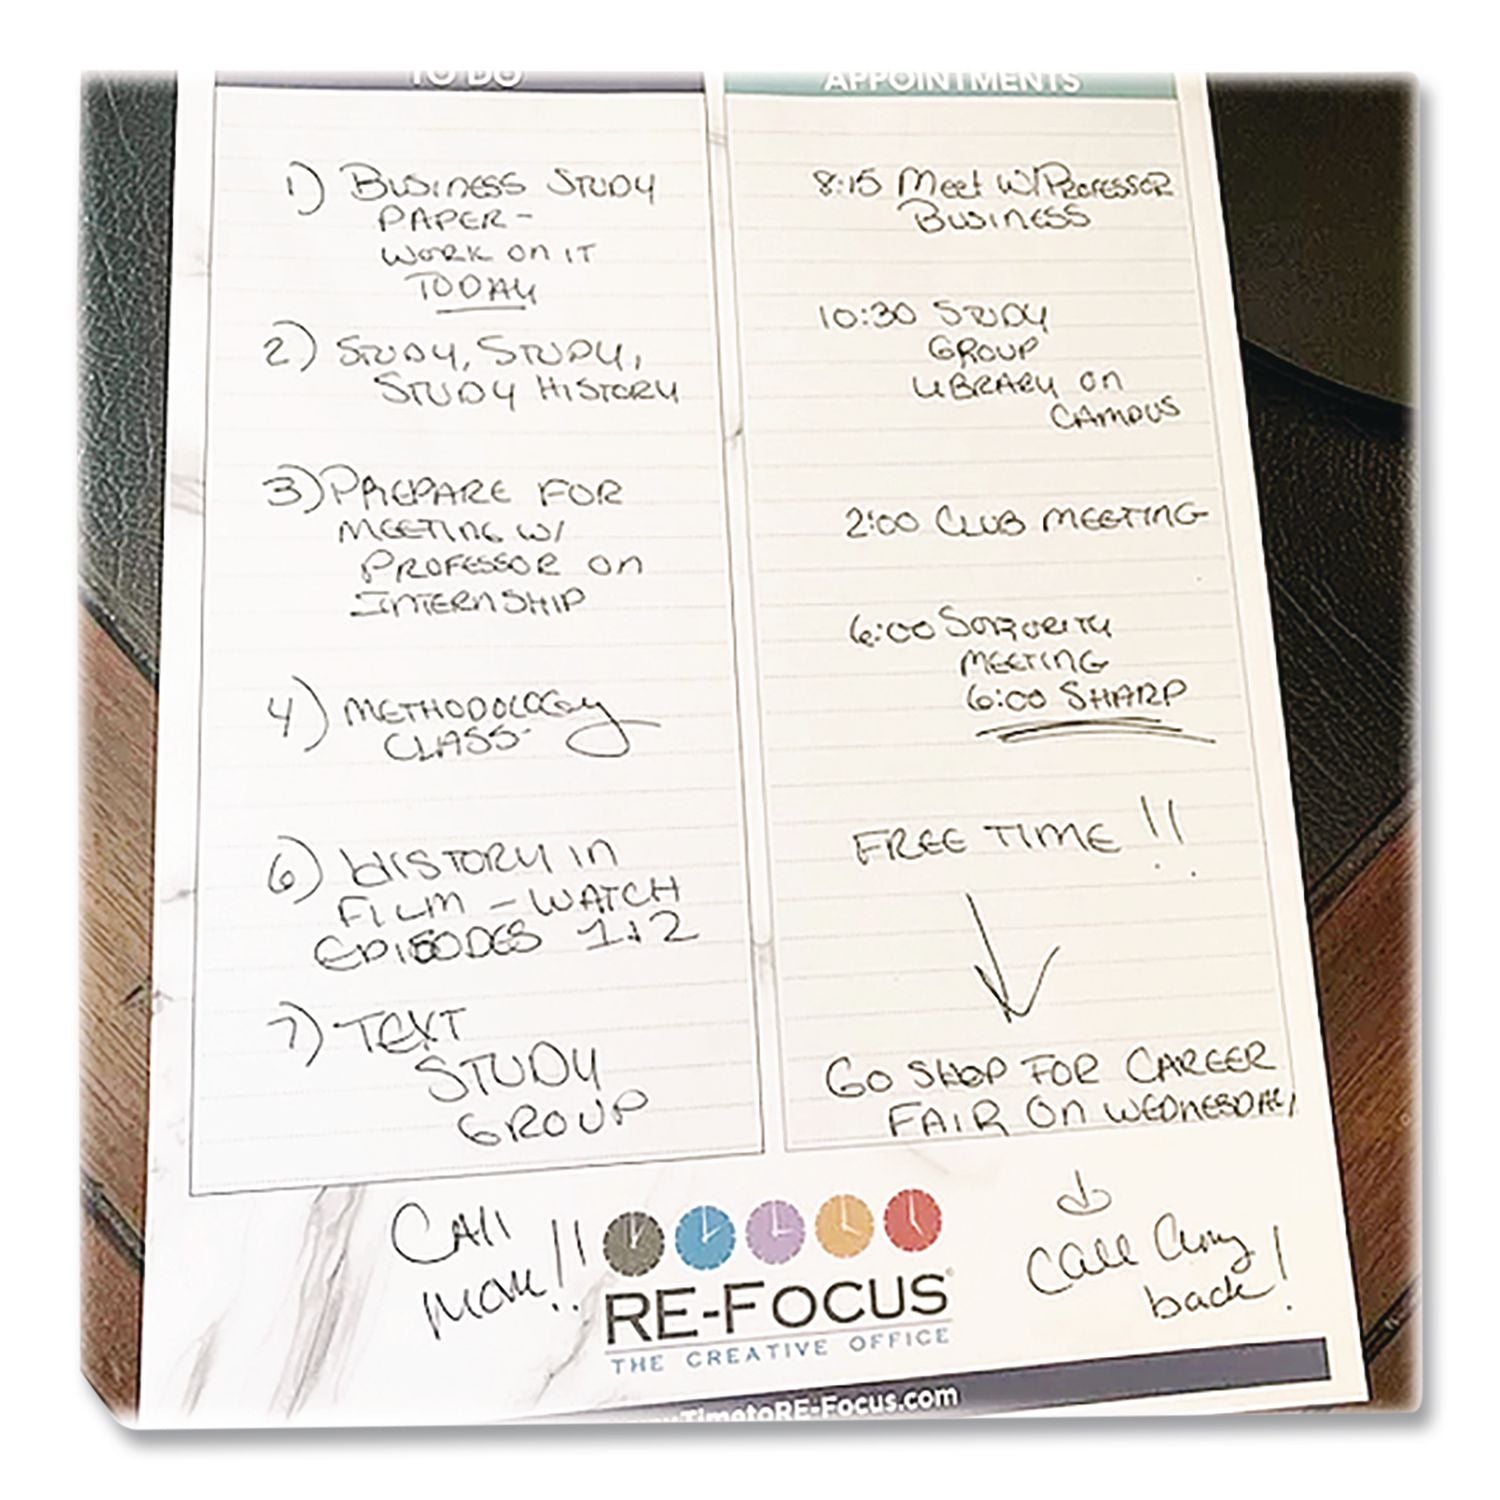 TO DO
1) BUSINESS STUDY
PAPER-
WORK ON IT
TODAY
2) STUDY, STUDY,
STUDY HISTORY
3) PREPARE FOR
MEETING W/
PROFESSOR ON
INTERNSHIP
4) METHODOLOGY
CLASS-
6) HISTORY IN
FILM - WATCH
EPISODES 1+2
7) TEXT
STUDY
GROUP
APPOINTMENTS
8:15 Meet W/PROFESSOR
BUSINESS
10:30 STUDY
GROUP
LIBRARY ON
CAMPUS
2:00 CLUB MEETING
6:00 SORORITY
MEETING
6:00 SHARP
FREE TIME !!
GO SHOP FOR CAREER
FAIR ON WEDNESDAY
CAll
mom!!
RE-FOCUS
THE CREATIVE OFFICE
call Amy
back!
TimetoRE-Focus.com